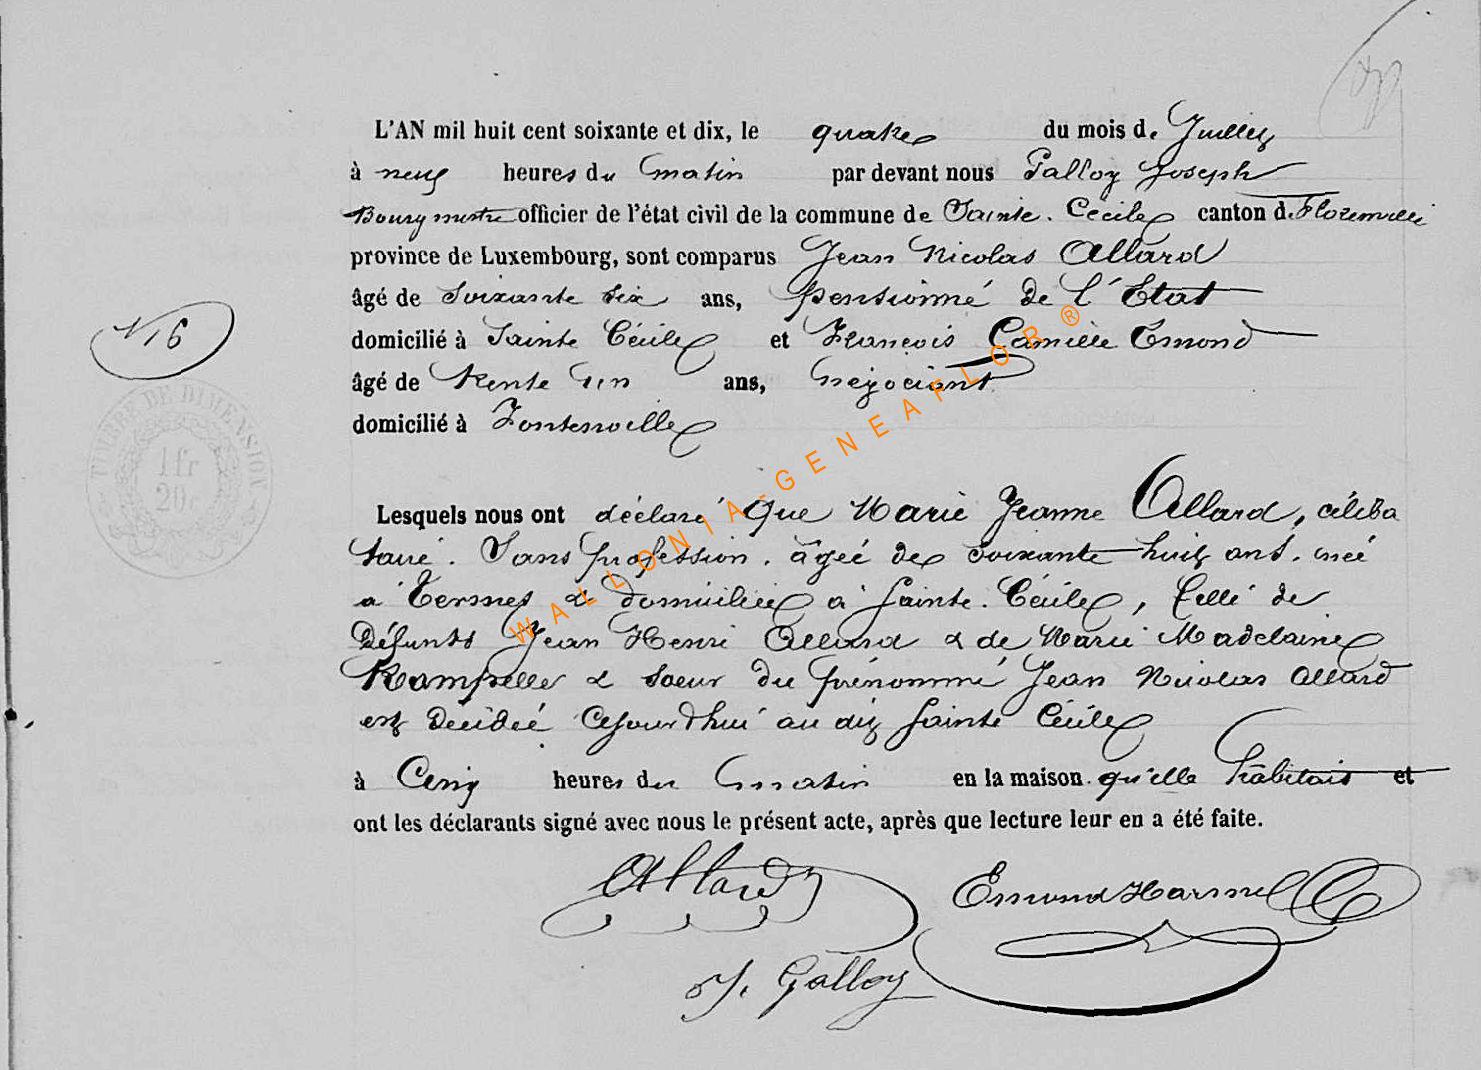 L'AN mil huit cent soixante et dix, le quatre du mois de Juillet
à neuf heures du matin par devant nous Galloy Joseph
Bourgmestre officier de l'état civil de la commune de Sainte-Cécile canton de Florenville
province de Luxembourg, sont comparus Jean Nicolas Allard
âgé de soixante six ans, pensionné de l'Etat
domicilié à Sainte Cécile et François Camille Emond
N 6
âgé de trente un ans, négociant
domicilié à Fontenoille
TIMBRE DE DIMENSION
1 fr
20c
Lesquels nous ont déclaré que Marie Jeanne Allard, céliba
taire. Sans profession. âgée de soixante huit ans. née
à Termes & domiciliée à Sainte-Cécile, fille de
Défunts Jean Henri Allard & de Marie Madelaine
& soeur du prénommé Jean Nicolas Allard
est décédée Cejourd'hui au dit Sainte Cécile
à Cinq heures du matin en la maison qu'elle habitait et
ont les déclarants signé avec nous le présent acte, après que lecture leur en a été faite.
Allard Emond Harmel
J. Galloy
WALLONIA-GENEAFLOR ®